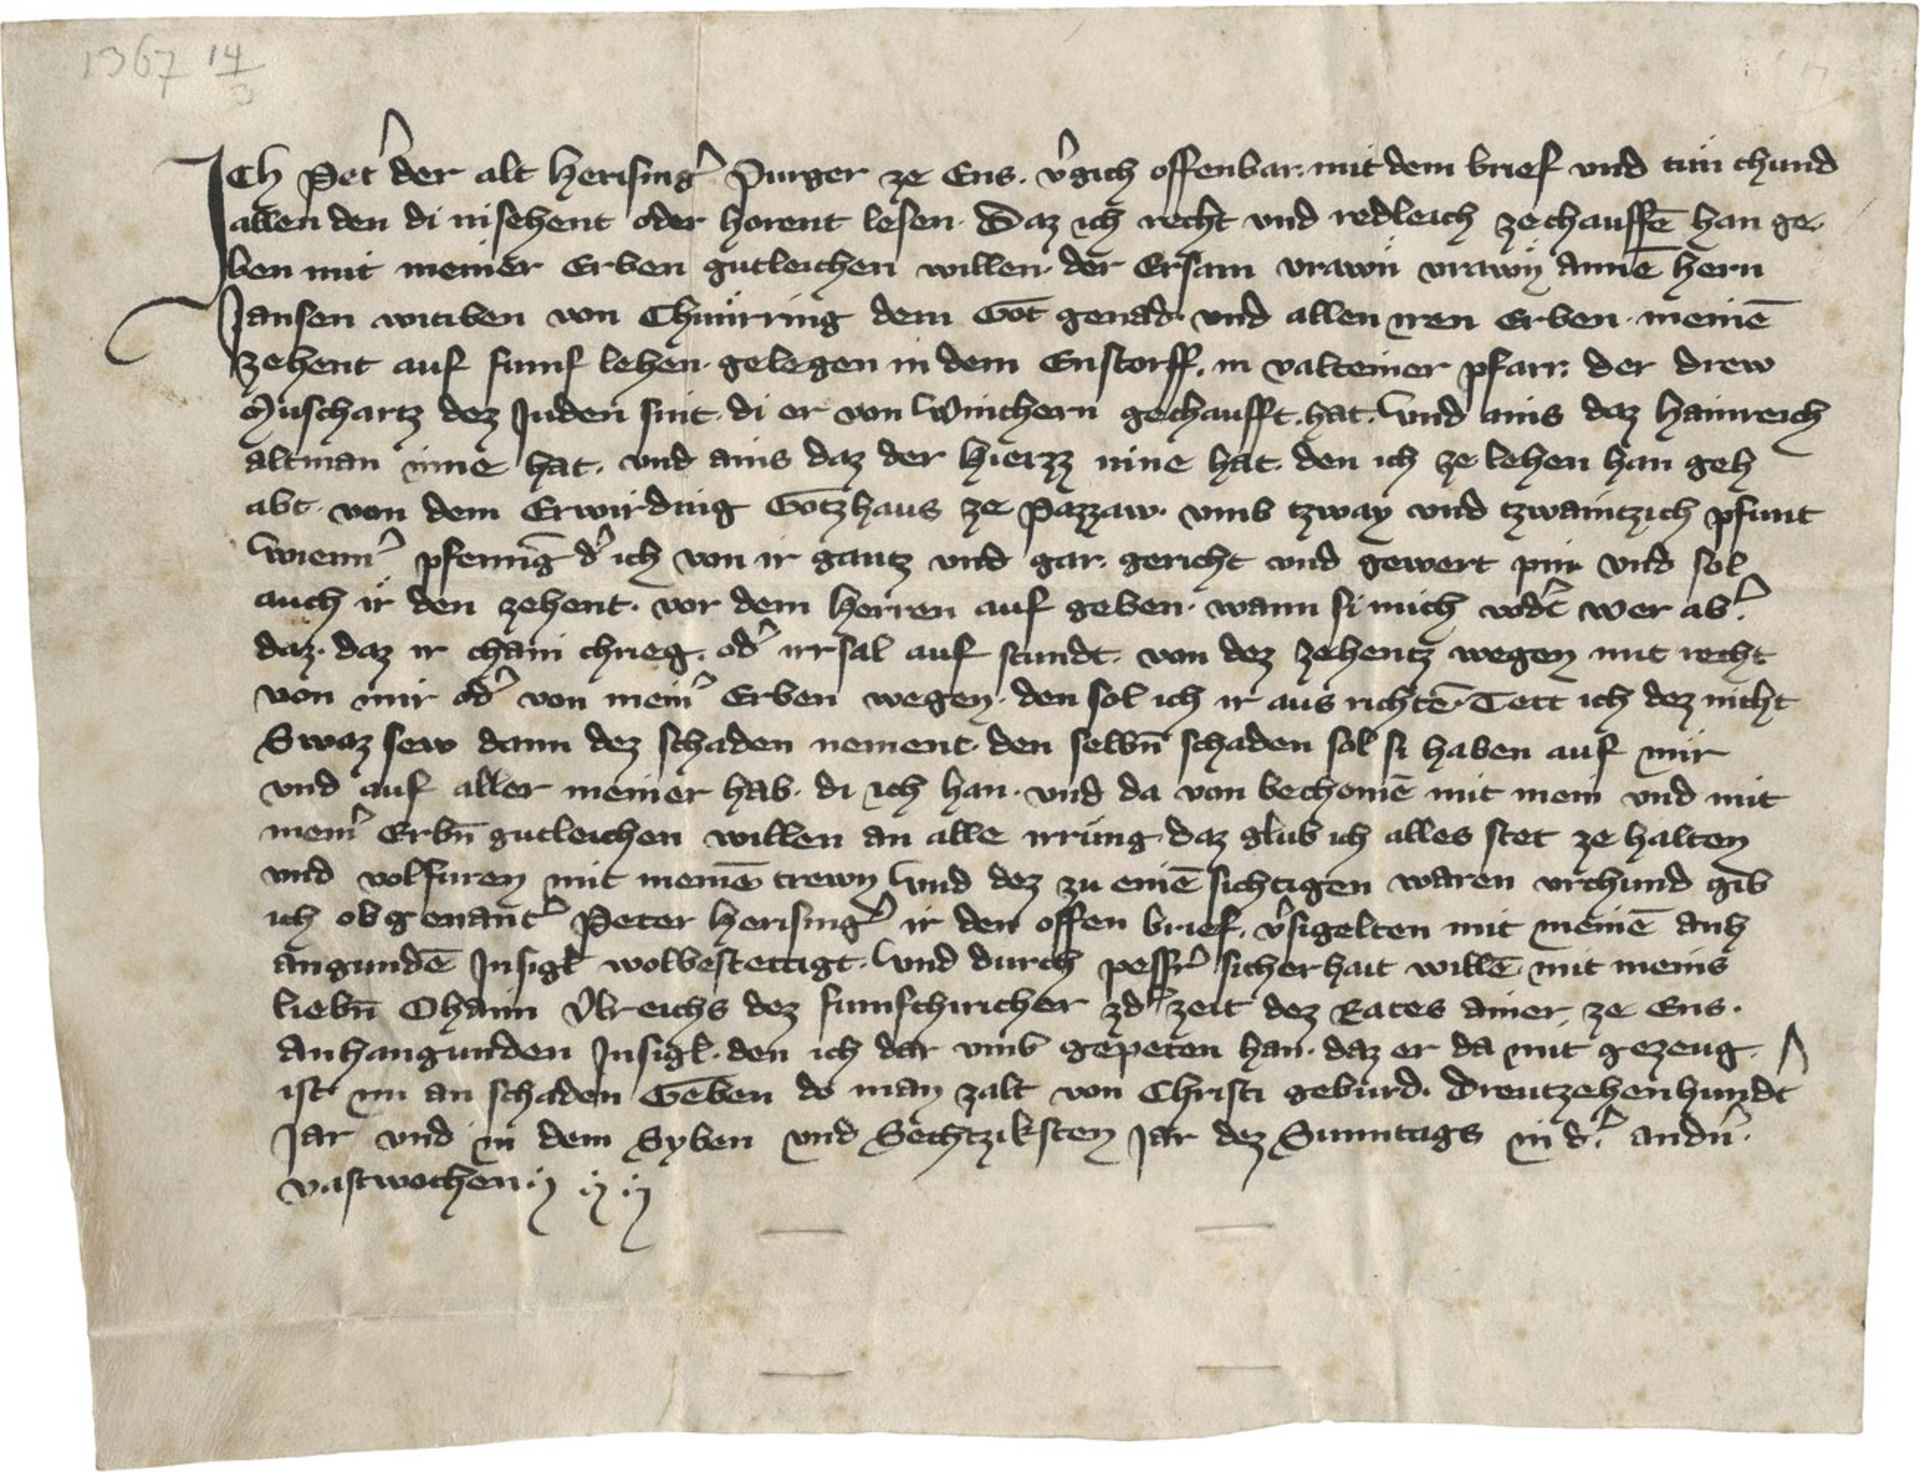 1367 14/3
Ich Pet' der alt Herising' Purger ze Ens. v'gich offenbar. mit dem brief vnd tun chund
allen den di in sehent oder horent lesen. Daz ich recht vnd redleich ze chauffē han ge-
ben mit meiner Erben gutleichen willen. der Ersam vrawn vrawn annē hern
Jansen witiben von dem Got genad. vnd allen iren Erben. meinē
zehent auf fumf lehen. gelegen in dem Enstorff. in valteiner pfarr. der drew
Muschartz dez Juden sint. di er von Winthern gechaufft. hat. Vnd ains daz Hainreich
altman inne hat. vnd ains daz der Hierzz inne hat. den ich ze lehen han geh
abt. von dem Erwirdnig Gotzhaus ze Pazzaw. vmb tzway vnd tzwaintzich pfunt
wienn' pfennīg d' ich von ir gantz vnd gar. gericht vnd gewert pin. vnd sol
auch ir den zehent. vor dem herren auf geben. wann si mich vod't wer ab'.
daz. daz ir chain chrieg. od' irrsal auf stundt. von dez zehentz wegen mit recht
von mir od' von mein' Erben wegen. den sol ich ir aus richtē. Tett ich dez nicht
Swaz sew dann dez schaden nement. den selbn̄ schaden sol si haben auf mir
vnd auf aller meiner hab. di ich han. vnd da von bechomē mit mein vnd mit
mein' Erbn̄ gutleichen willen an alle irrung. daz glub ich alles stet ze halten
vnd volfuren mit meinē trewn Vnd dez zu einē sichtigen waren vrchund gib
ich obgenant' Peter Herising' ir den offen brief. v'sigelten mit meinē anh
angundē Insigl wolbestettigt. Vnd durch pessr' sicherhait willē. mit meins
liebn̄ Ohaim Vlreichs dez fumfchiricher zd' zeit dez Rates ainer ze Ens.
Anhangunden Insigl. den ich dar vmb gepeten han. daz er da mit gezeug.
ist im an schaden Geben do man zalt von Christi geburd. Dreutzehenhundt
Jar vnd in dem Syben vnd Sechtziksten Jar dez Sunntags in d'. andn'.
vastwochen.